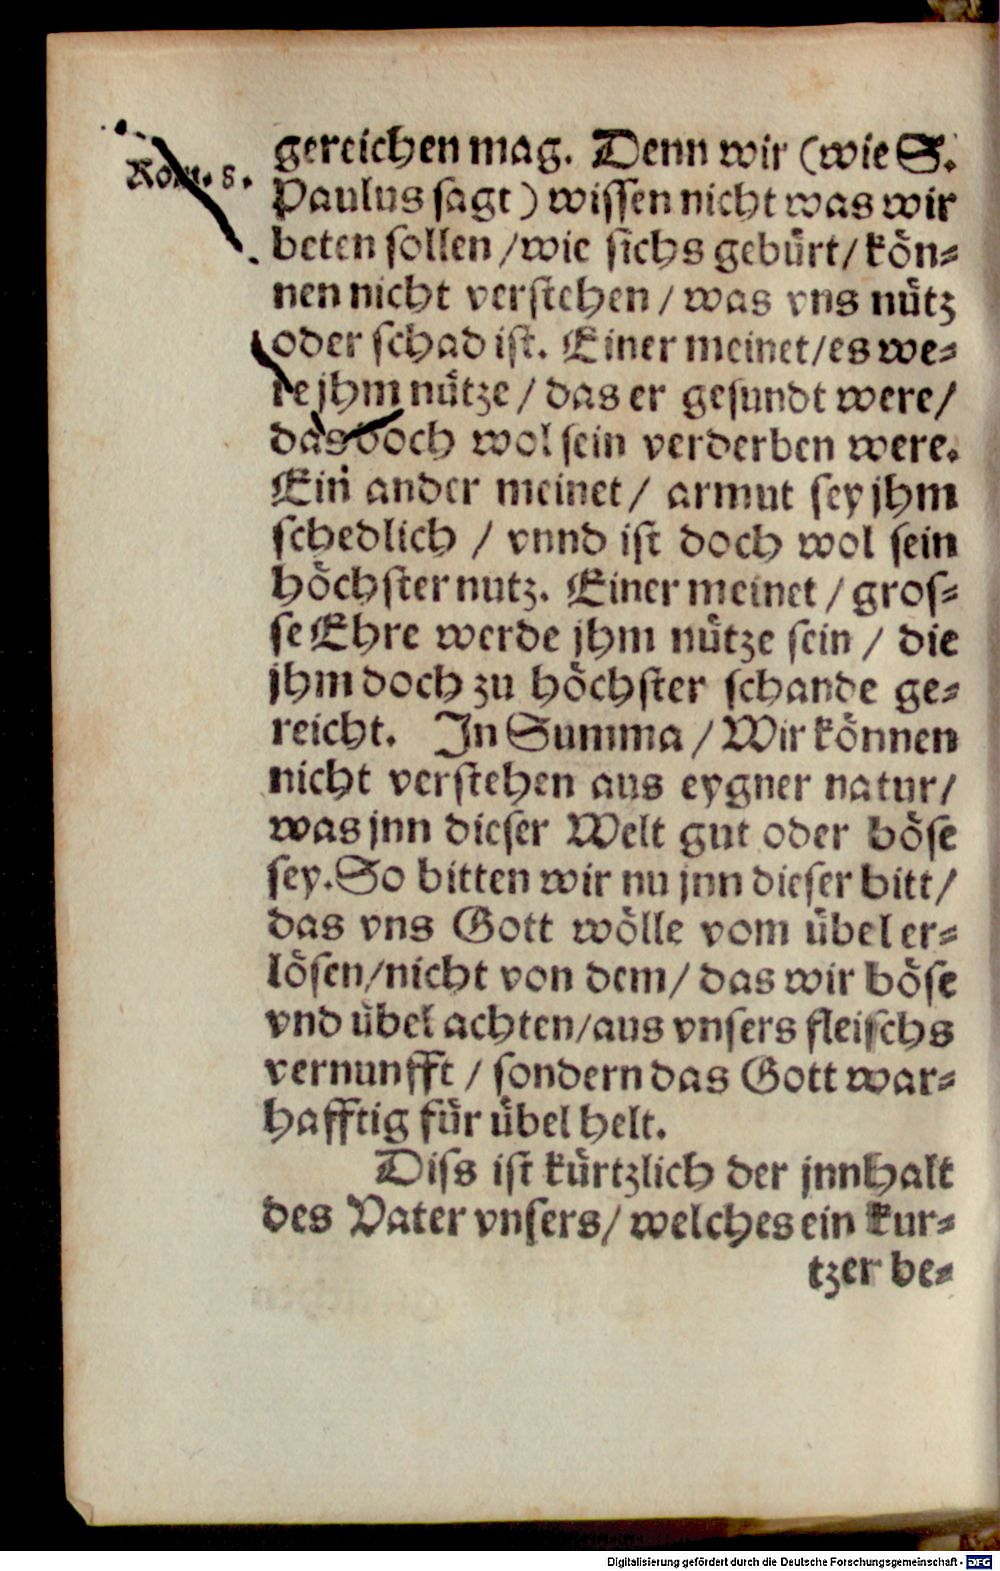 Rom. 8.
gereichen mag. Denn wir (wie S.
Paulus sagt) wissen nicht was wir
beten sollen / wie sichs gebürt / kön⸗
nen nicht verstehen / was vns nütz
oder schad ist. Einer meinet / es we⸗
re jhm nütze / das er gesundt were /
das doch wol sein verderben were.
Ein ander meinet / armut sey jhm
schedlich / vnnd ist doch wol sein
höchster nutz. Einer meinet / gros⸗
se Ehre werde jhm nütze sein / die
jhm doch zu höchster schande ge⸗
reicht. In Summa / Wir können
nicht verstehen aus eygner natur /
was jnn dieser Welt gut oder böse
sey. So bitten wir nu jnn dieser bitt /
das vns Gott wölle vom übel er⸗
lösen / nicht von dem / das wir böse
vnd übel achten / aus vnsers fleischs
vernunfft / sondern das Gott war⸗
hafftig für übel helt.
Diss ist kürtzlich der jnnhalt
des Vater vnsers / welches ein kur⸗
tzer be⸗
Digitalisierung gefördert durch die Deutsche Forschungsgemeinschaft - DFG